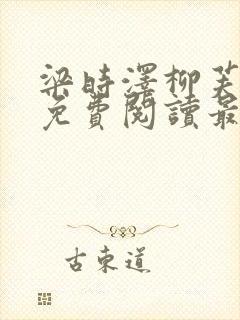 梁時澤柳芙
免費閱讀最
古東道